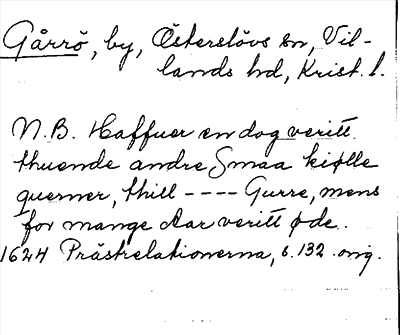 Gårrö, by, Österslövs sn, Vil-
lands hd, Krist. l.
N.B. Haffuer en dog veritt
thuende andre Smaa kiølle
querner, thill ---- Gurre, mens
for mange Aar veritt øde.
1624 Prästrelationerna, s. 132. orig.